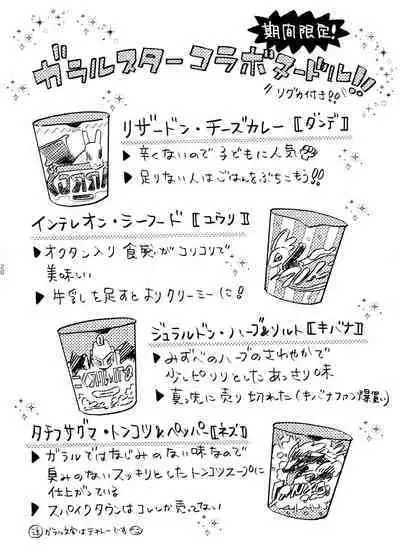 期間限定!
ガラルスターコラボヌードル!!
リザードン・チーズカレー〖ダンデ〗
▶ 辛くないので子どもに人気
▶ 足りない人はごはんをぶちこもう!!
インテレオン・シーフード〖ユウリ〗
▶ オクタン入り 食感がコリコリで
美味しい
▶ 牛乳を足すとよりクリーミーに!
ジュラルドン・ハーブ&ソルト〖キバナ〗
▶ みずべのハーブのさわやかで
少しピリリとしたあっさり味
▶ 真っ先に売り切れた(キバナファン爆買い)
タチフサグマ・トンコツ&ペッパー〖ネズ〗
▶ ガラルではなじみのない味なので
臭みのないスッキリとしたトンコツスープに
仕上がっている
▶ スパイクタウンはコレしか売ってない